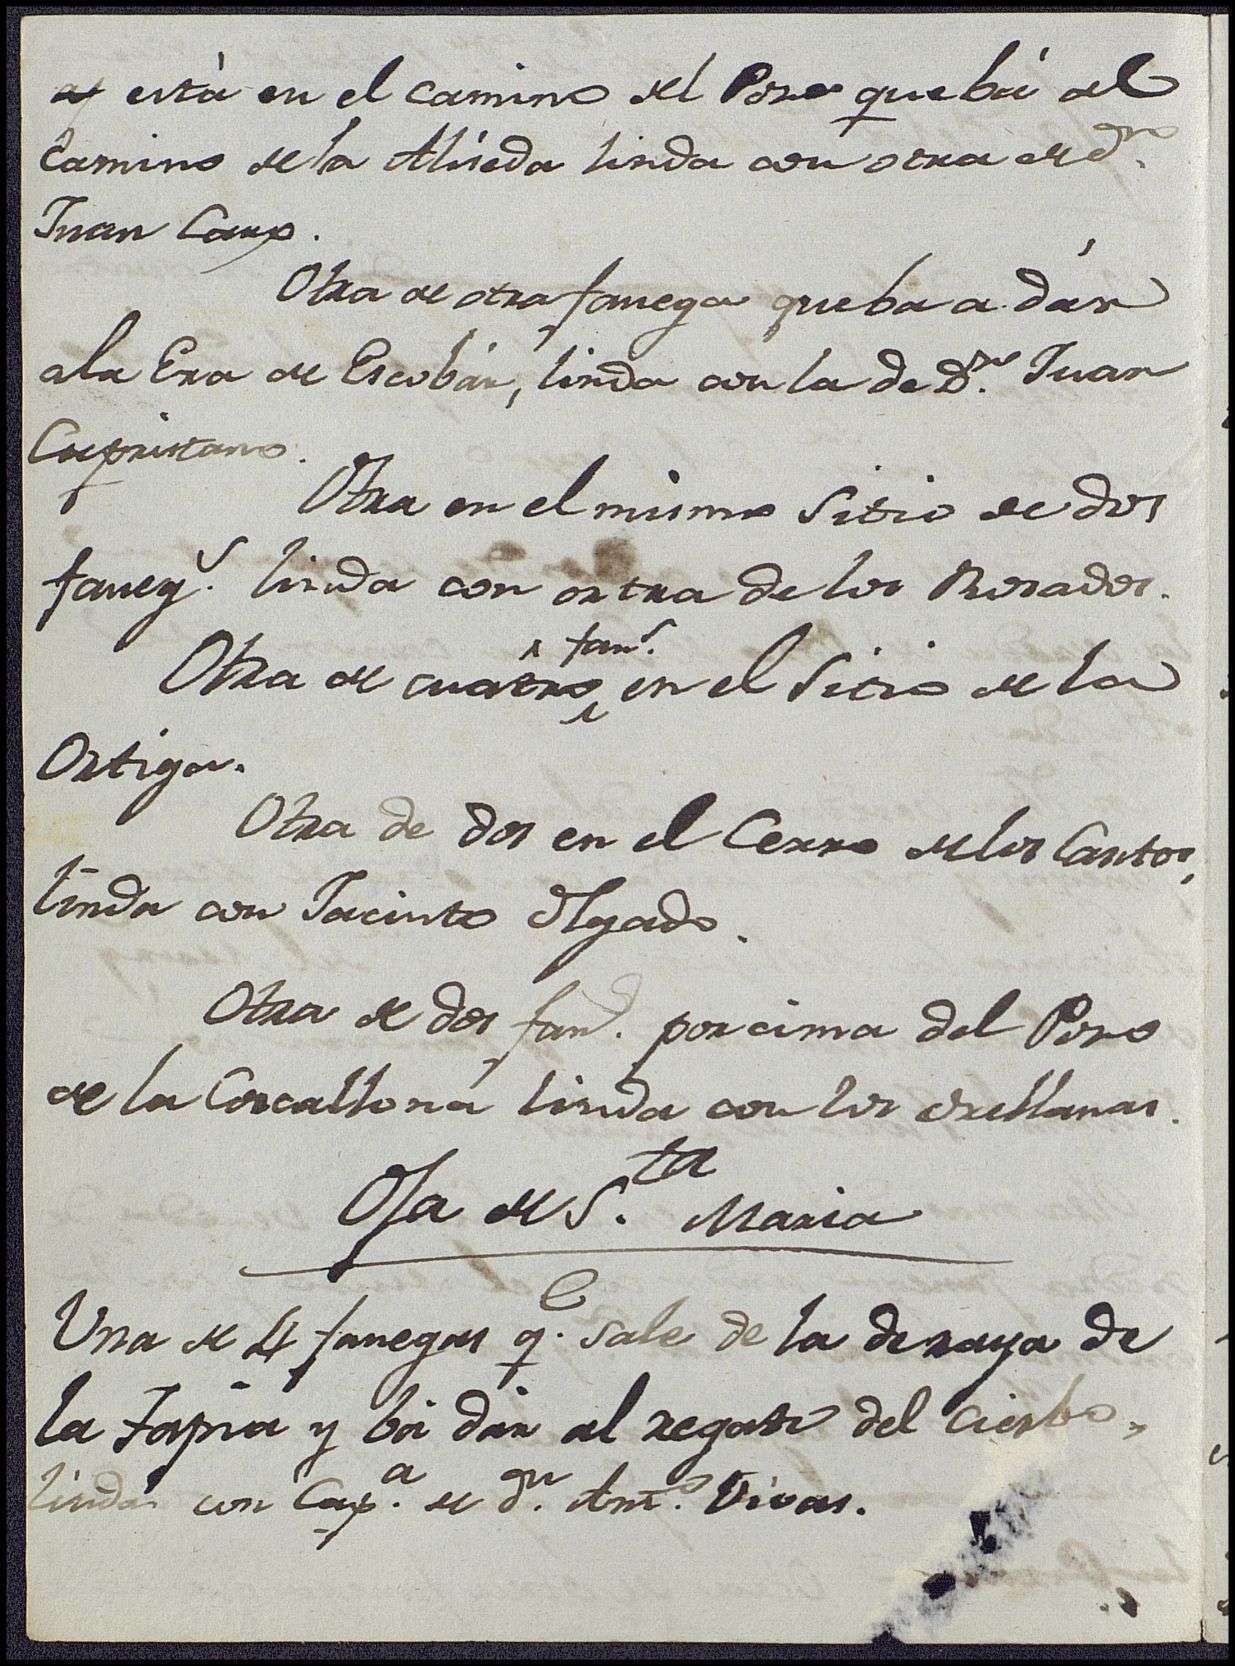 está en el camino del Pozo que bá al
Camino de la Aliseda linda con otra de Dn.
Juan Carp.
Otra de otra fanega que ba a dár
a la Era de Escobár, linda con la de Dn. Juan
Capristano.
Otra en el mismo Sitio de dos
faneg.s linda con ortra de los Rosados.
Otra de cuatro fan.s en el Sitio de la
Ortiga.
Otra de dos en el Cerro de los Cantos,
linda con Jacinto Olgado.
Otra de dos fan.s por cima del Pozo
de la Corcallona linda con los Orellanas.
Oja de S.ta Maria
Una de 4 fanegas q.e sale de la deraya de
la Tapia y bá dár al regato del Cierbo,
linda con Cap.a de Dn. Ant.o Vivas.